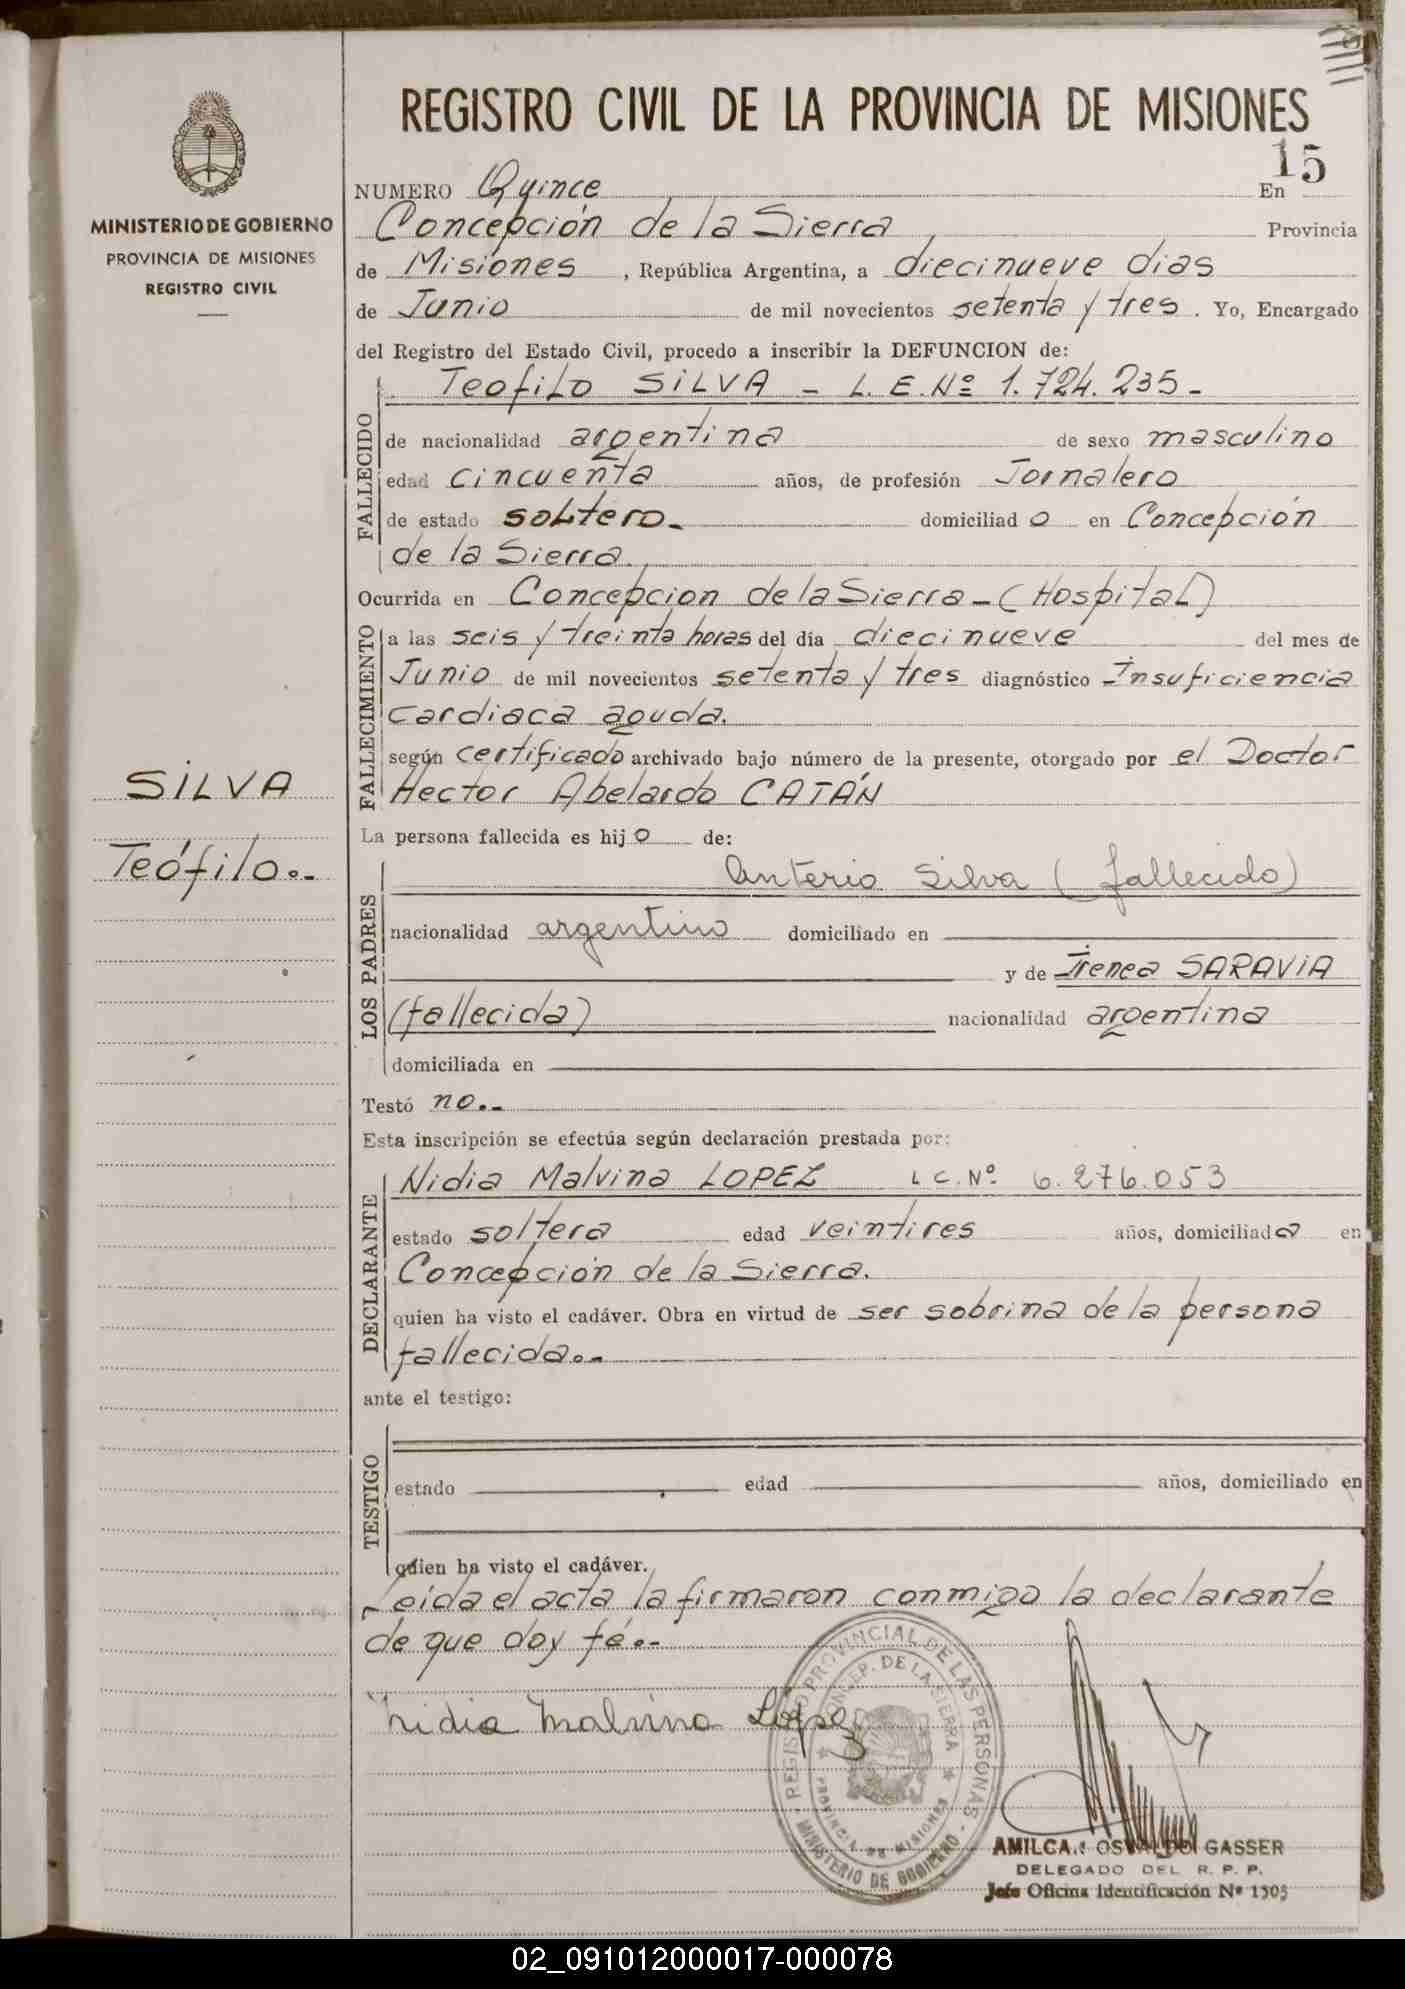 REGISTRO CIVIL DE LA PROVINCIA DE MISIONES
15
MINISTERIO DE GOBIERNO
PROVINCIA DE MISIONES
REGISTRO CIVIL
NUMERO Quince En
Concepción de la Sierra Provincia
de Misiones , República Argentina, a diecinueve dias
de Junio de mil novecientos setenta y tres . Yo, Encargado
del Registro del Estado Civil, procedo a inscribir la DEFUNCION de:
FALLECIDO
Teofilo SILVA - L. E. Nº 1.724.235-
de nacionalidad argentina de sexo masculino
edad cincuenta años, de profesión Jornalero
de estado soltero.- domiciliado en Concepción
de la Sierra.
Ocurrida en Concepcion de la Sierra-(Hospital)
FALLECIMIENTO
a las seis y treinta horas del día diecinueve del mes de
Junio de mil novecientos setenta y tres diagnóstico Insuficiencia
cardiaca aguda.
según certificado archivado bajo número de la presente, otorgado por el Doctor
Hector Abelardo CATÁN
SILVA
Teófilo.-
La persona fallecida es hijo de:
LOS PADRES
Anterio Silva (fallecido)
nacionalidad argentino domiciliado en
y de Irenea SARAVIA
(fallecida) nacionalidad argentina
domiciliada en
Testó no.-
Esta inscripción se efectúa según declaración prestada por:
DECLARANTE
Nidia Malvina LOPEZ L C. Nº 6.276.053
estado soltera edad veintires años, domiciliada en
Concepción de la Sierra.
quien ha visto el cadáver. Obra en virtud de ser sobrina de la persona
fallecida.-
ante el testigo:
TESTIGO
estado edad años, domiciliado en
quien ha visto el cadáver.
Leida el acta la firmaron conmigo la declarante
de que doy fé.-
Nidia Malvina López
REGISTRO PROVINCIAL DE LAS PERSONAS
CONCEP. DE LA SIERRA
PROVINCIA DE MISIONES
MINISTERIO DE GOBIERNO
AMILCAR OSVALDO GASSER
DELEGADO DEL R. P. P.
Jefe Oficina Identificación Nº 1505
02_091012000017-000078